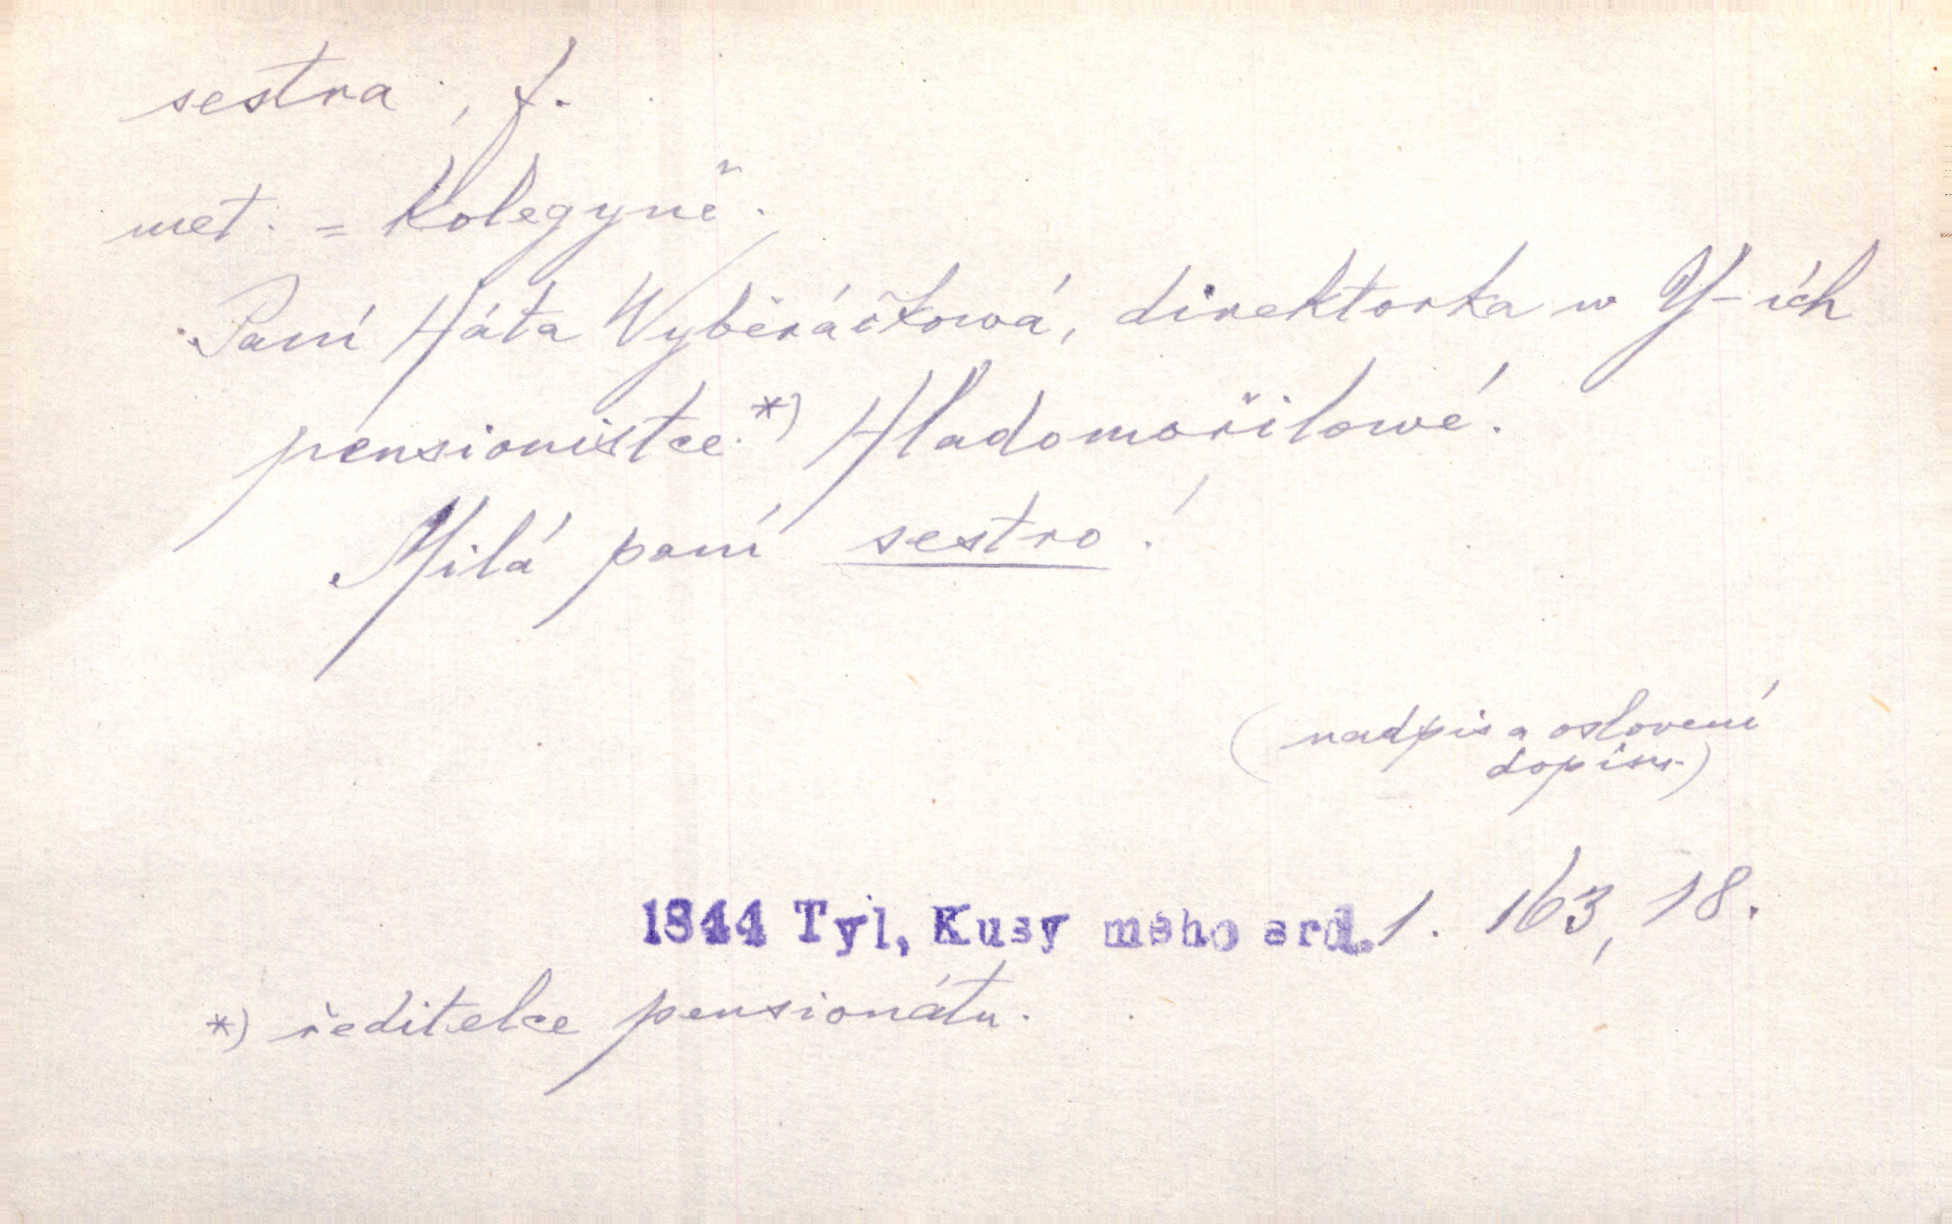 sestra, f.
met. = kolegyně.
Paní Háta Wyběráčkowá, direktorka w Y-ích
pensionistce *) Hladomořilowé.
Milá paní sestro!
(nadpis a oslovení
dopisu.)
1844 Tyl, Kusy mého srd. 1. 163, 18.
*) ředitelce pensionátu.